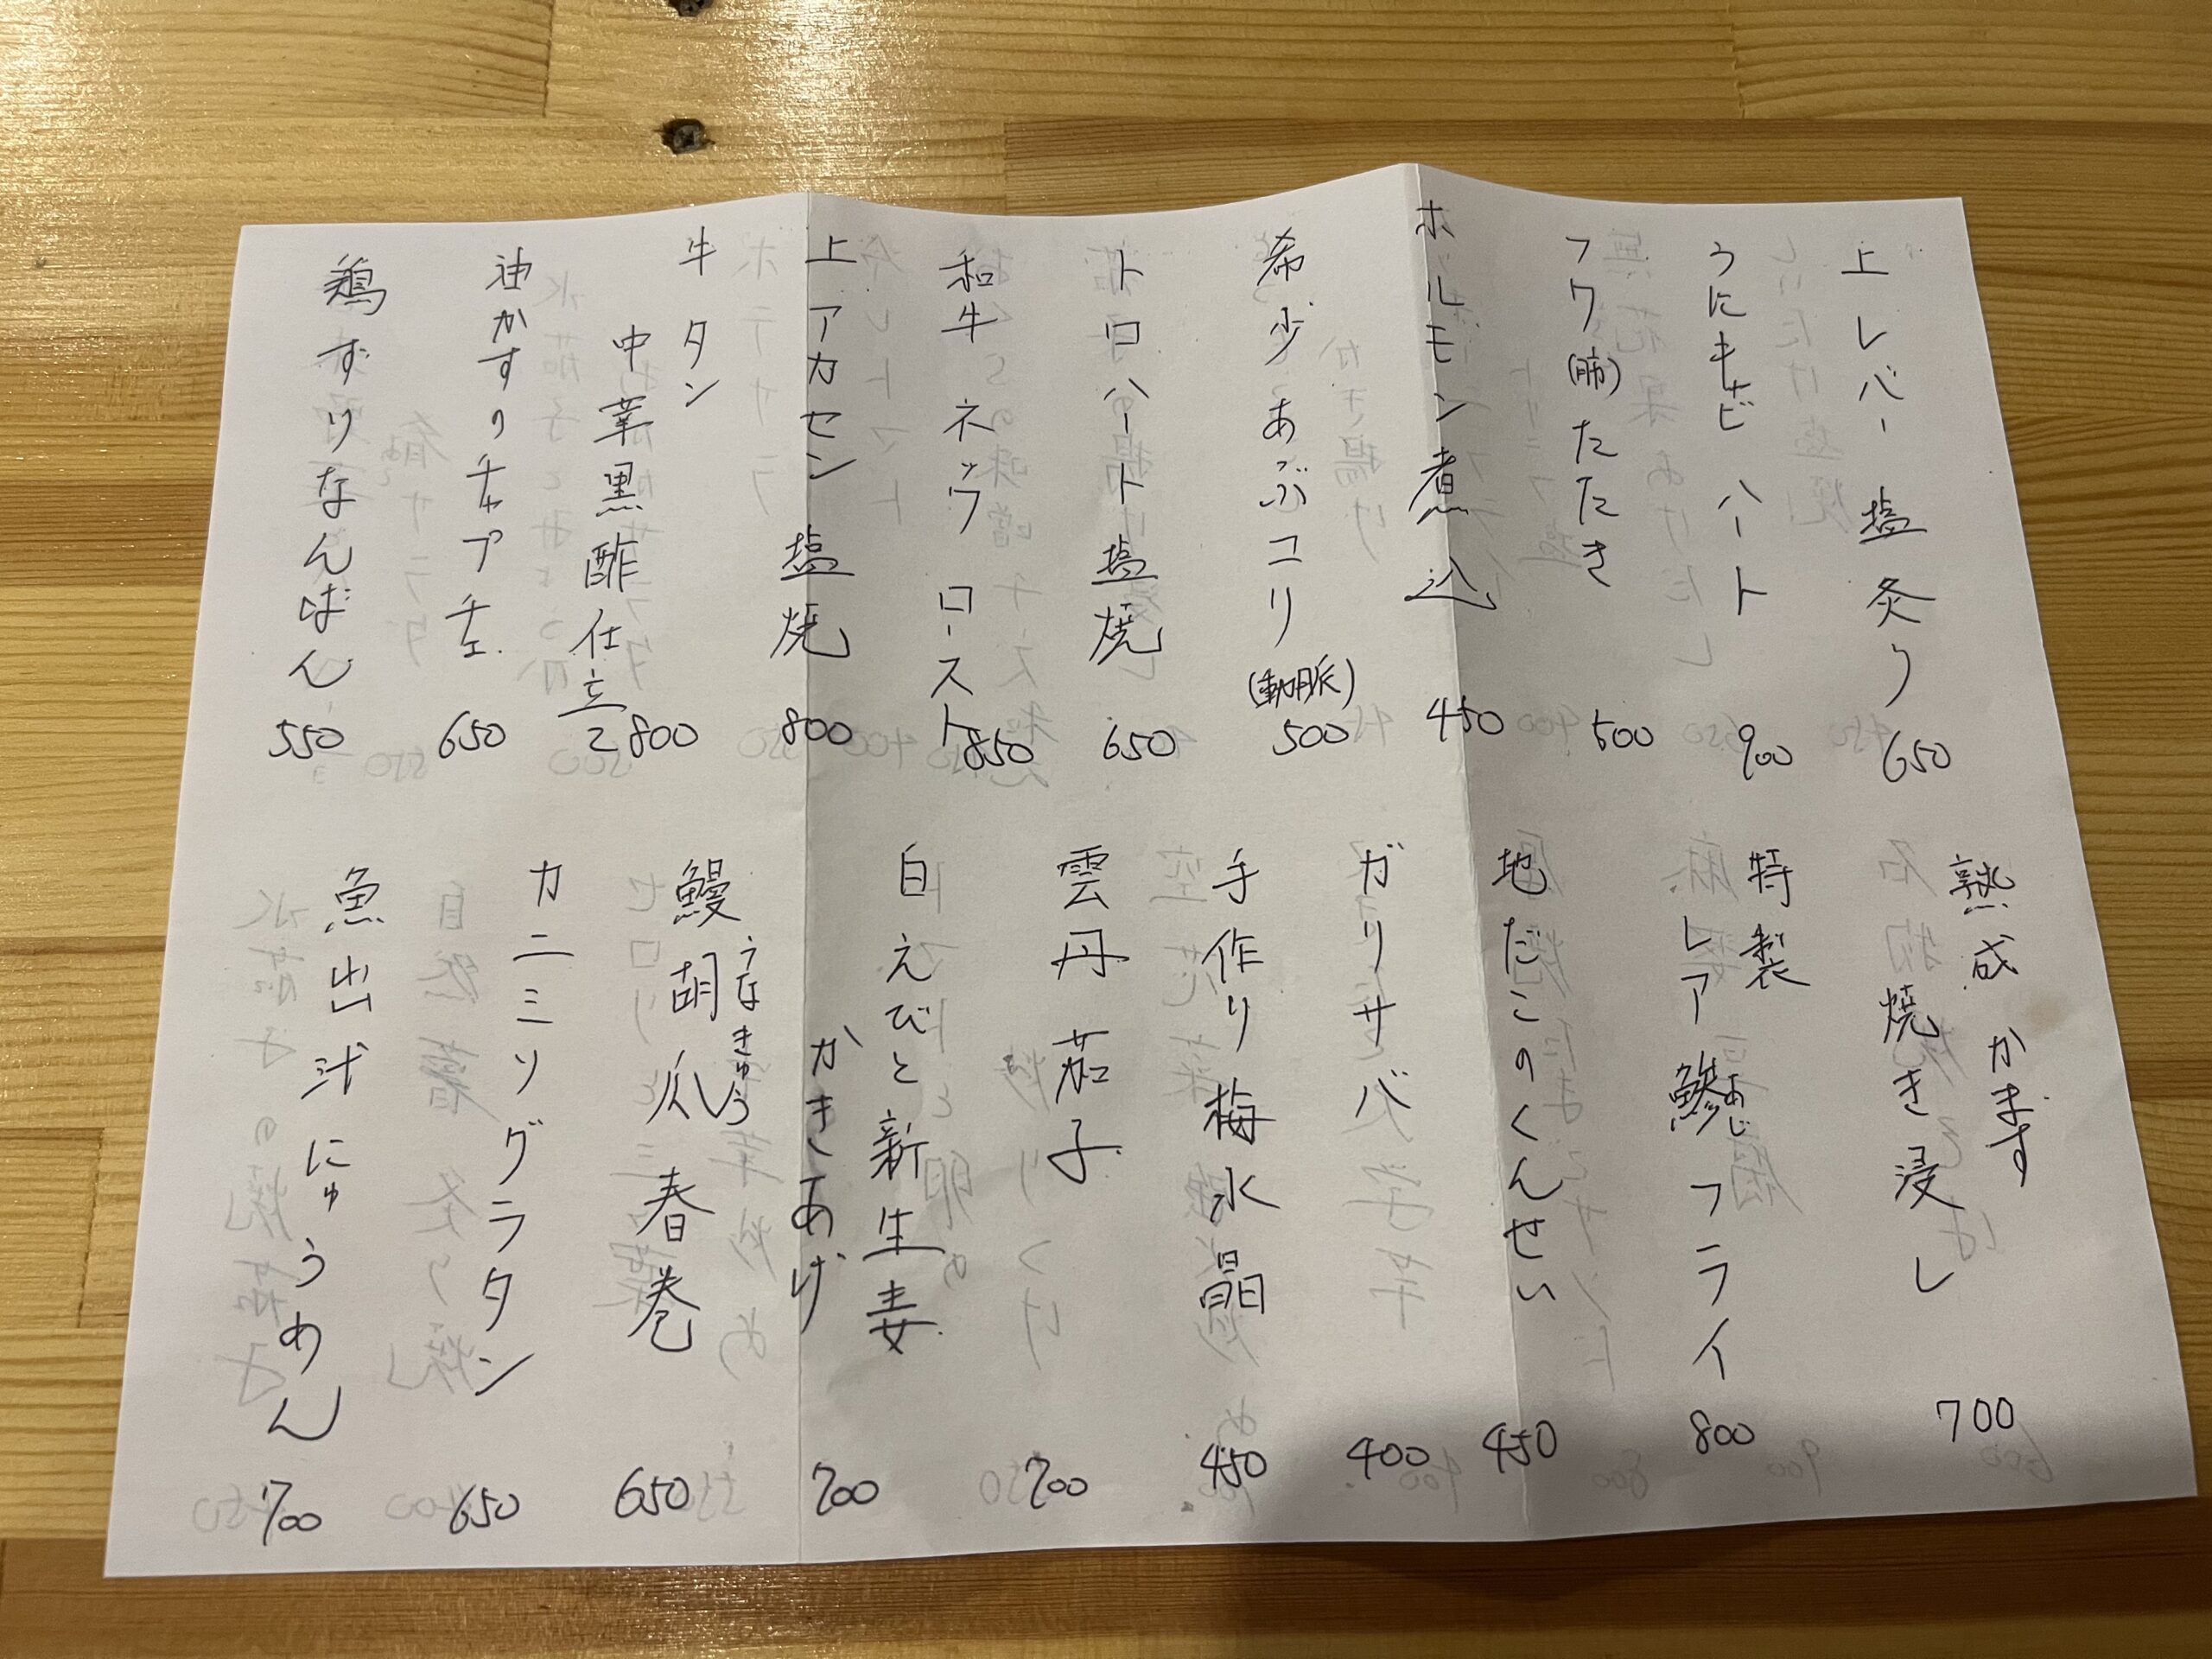 上レバー 塩炙り 650
うにキャビ ハート 900
フワ(肺)たたき 500
ホルモン煮込 450
希少あぶコリ(動脈) 500
トロハート塩焼 650
和牛 ネック ロースト 850
上アカセン 塩焼 800
牛タン
中華黒酢仕立て 800
油かすのチャプチェ 650
鶏ずりなんばん 550
熟成 かます
焼き浸し 700
特製
レア鯵フライ 800
あじ
地だこのくんせい 450
ガリサバ 400
手作り梅水晶 450
雲丹茄子 700
白えびと新生姜
かきあげ 700
うなきゅう
鰻胡瓜 春巻 650
カニミソグラタン 650
魚出汁にゅうめん 700